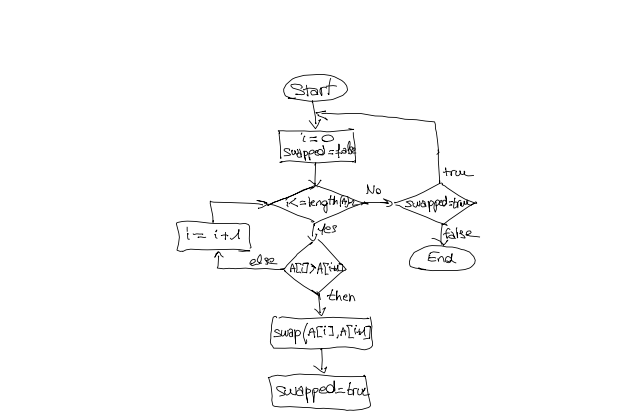 Start
i=0
swapped=false
i<=length(A)-1
No
swapped=true
true
false
End
Yes
i= i+1
else
A[i]>A[i+1]
then
swap(A[i],A[i+1]
swapped=true